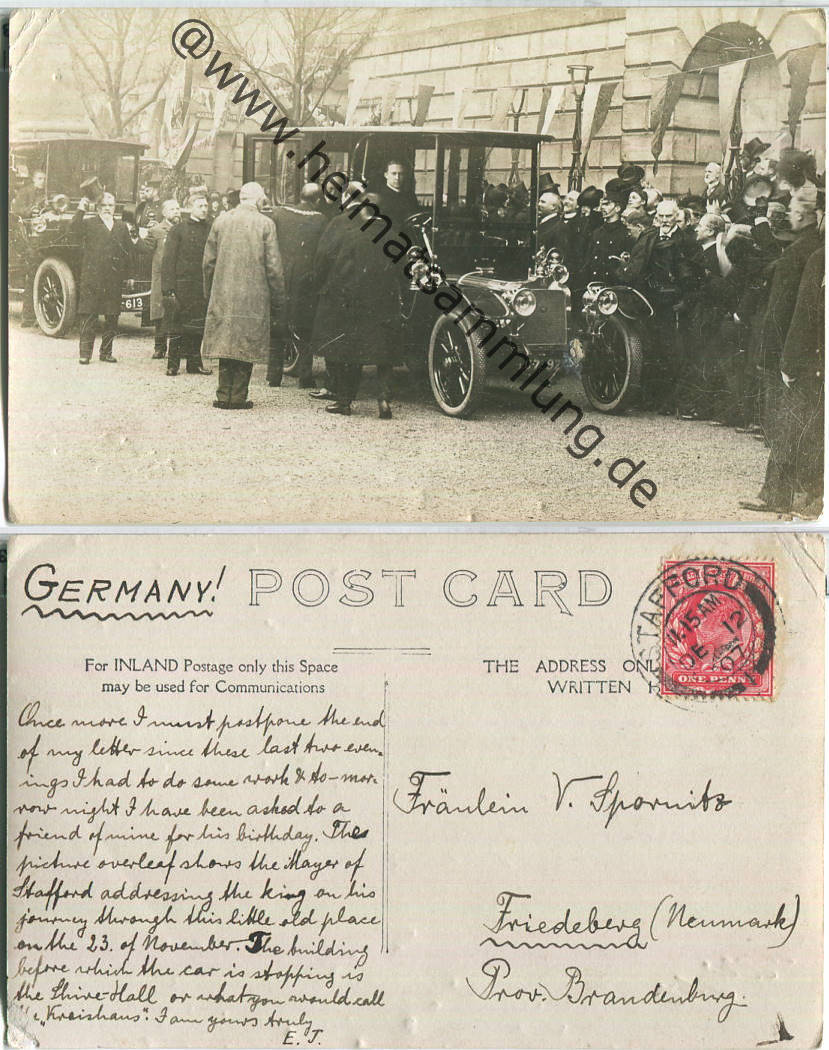 @www.heimatsammlung.de
613
GERMANY! POST CARD
For INLAND Postage only this Space
may be used for Communications
THE ADDRESS ONL
WRITTEN H
STAFFORD
11.15AM
DE 12
07
ONE PENNY
Once more I must postpone the end
of my letter since these last two even-
ings I had to do some work & to-mor-
row night I have been asked to a
friend of mine for his birthday. The
picture overleaf shows the Mayer of
Stafford addressing the king on his
journey through this little old place
on the 23. of November. The building
before which the car is stopping is
the Shire-Hall or what you would call
„Kreishaus". I am yours truly
E. J.
Fräulein V. Spornitz
Friedeberg (Neumark)
Prov. Brandenburg.